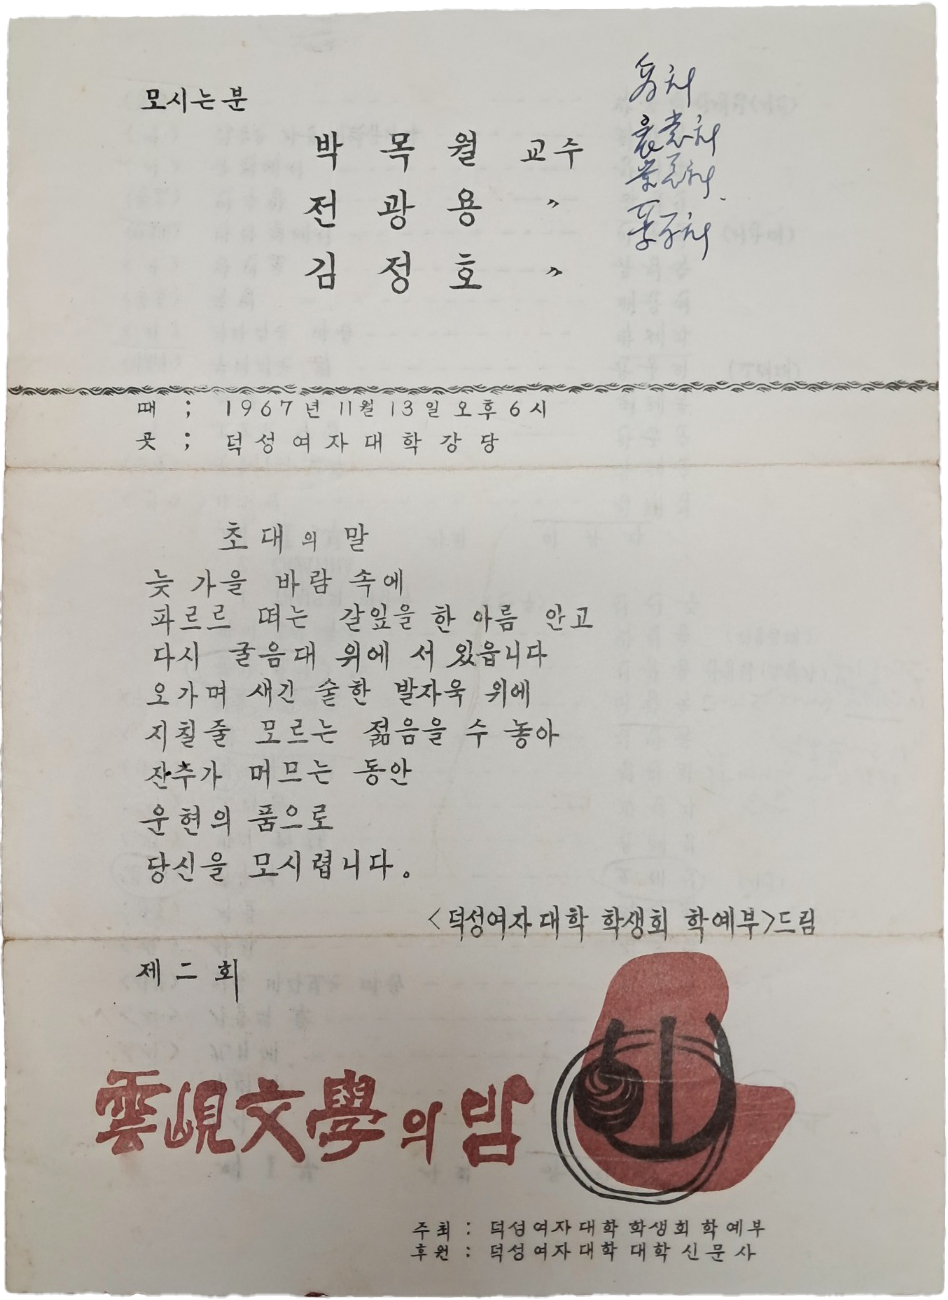 모시는분
박 목 월 교수
전 광 용 〃
김 정 호 〃
때 ; 1967년 11월 13일 오후 6시
곳 ; 덕성여자대학강당
초대의 말
늦 가을 바람 속에
파르르 떠는 갈잎을 한 아름 안고
다시 굴음대 위에 서 있읍니다
오가며 새긴 숱한 발자욱 위에
지칠줄 모르는 젊음을 수 놓아
잔추가 머므는 동안
운현의 품으로
당신을 모시렵니다.
<덕성여자대학 학생회 학예부>드림
제 二 회
雲峴文學의 밤
주최 : 덕성여자대학 학생회 학예부
후원 : 덕성여자대학 대학신문사